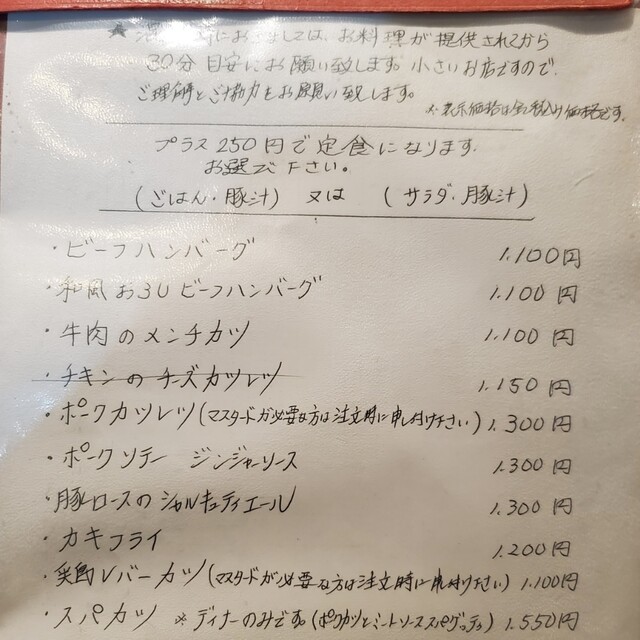 お料理が提供されてから
30分目安にお願い致します。小さいお店ですので、
ご理解とご協力をお願い致します。
※表示価格は全て税込み価格です。
プラス250円で定食になります。
お選び下さい。
(ごはん・豚汁) 又は (サラダ・豚汁)
・ビーフハンバーグ 1.100円
・和風おろしビーフハンバーグ 1.100円
・牛肉のメンチカツ 1.100円
・チキンのチーズカツレツ 1.150円
・ポークカツレツ(マスタードが必要な方は注文時に申し付け下さい) 1.300円
・ポークソテー ジンジャーソース 1.300円
・豚ロースのシャルキュティエール 1.300円
・カキフライ 1.200円
・レバーカツ(マスタードが必要な方は注文時に申し付け下さい) 1.100円
・スパカツ ※ディナーのみです。(ポークカツとミートソーススパゲッティ) 1.550円